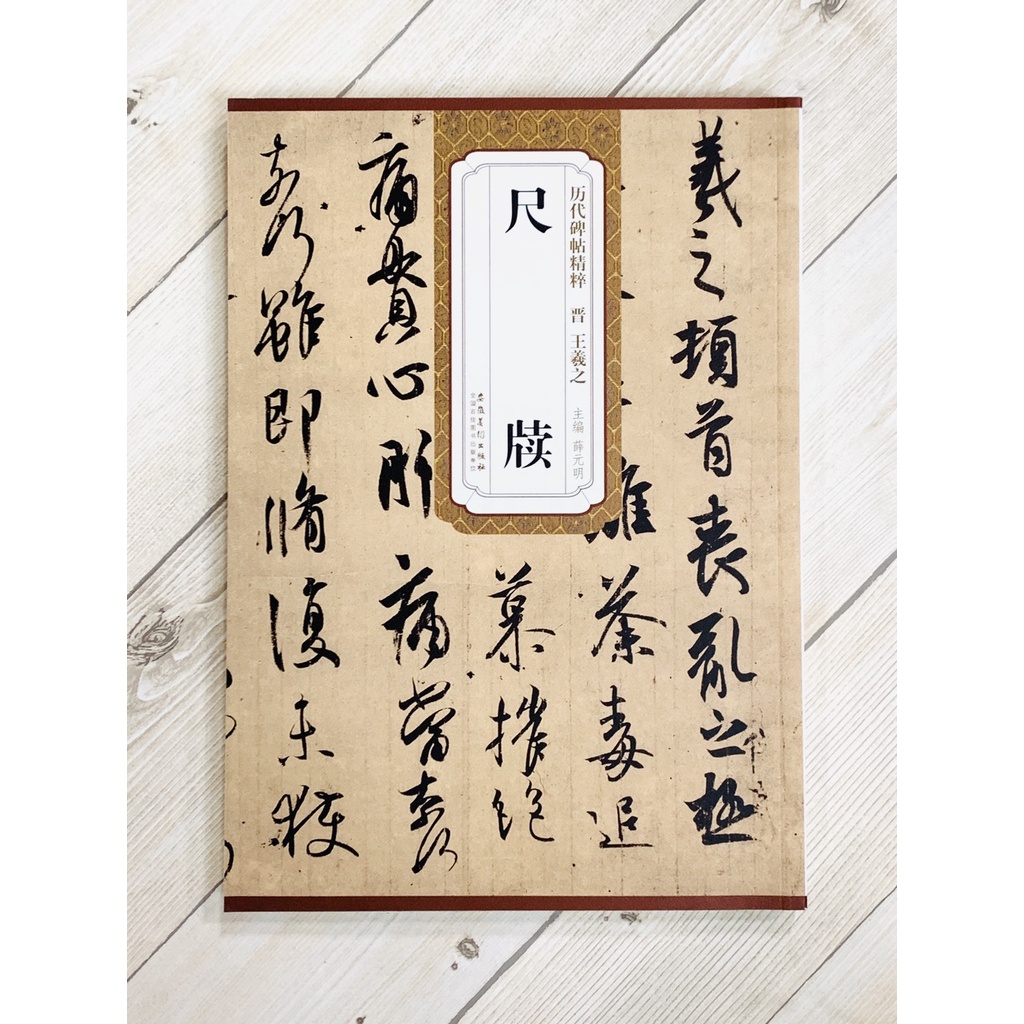 羲之頓首喪亂之極
離荼毒追
慕摧絕
历代碑帖精粹 晋 王羲之 主编 薛元明
尺牍
安徽美术出版社
全国百佳图书出版单位
痛貫心肝痛當奈何
奈何雖即脩復未獲